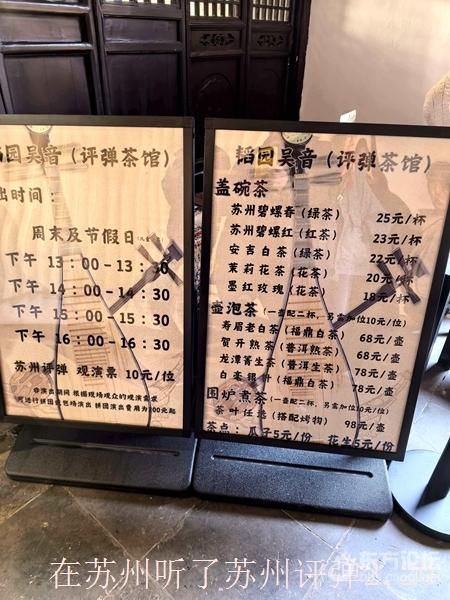 韬园吴音（评弹茶馆）
出时间：
周末及节假日
下午 13：00-13：30
下午 14：00-14：30
下午 15：00-15：30
下午 16：00-16：30
苏州评弹 观演票 10元/位
韬园吴音（评弹茶馆）
盖碗茶
苏州碧螺春（绿茶） 25元/杯
苏州碧螺红（红茶） 23元/杯
安吉白茶（绿茶） 22元/杯
茉莉花茶（花茶） 20元/杯
墨红玫瑰（花茶） 18元/杯
壶泡茶（一壶配二杯，另需加位10元/位）
寿眉老白茶（福鼎白茶） 68元/壶
贺开熟茶（普洱熟茶） 68元/壶
龙潭箐生茶（普洱生茶） 78元/壶
白毫银针（福鼎白茶） 78元/壶
围炉煮茶（一壶配二杯，另需加位10元/位）
茶叶任选（搭配烤物） 98元/壶
茶点：瓜子5元/份 花生5元/份
在苏州听了苏州评弹
东方论坛